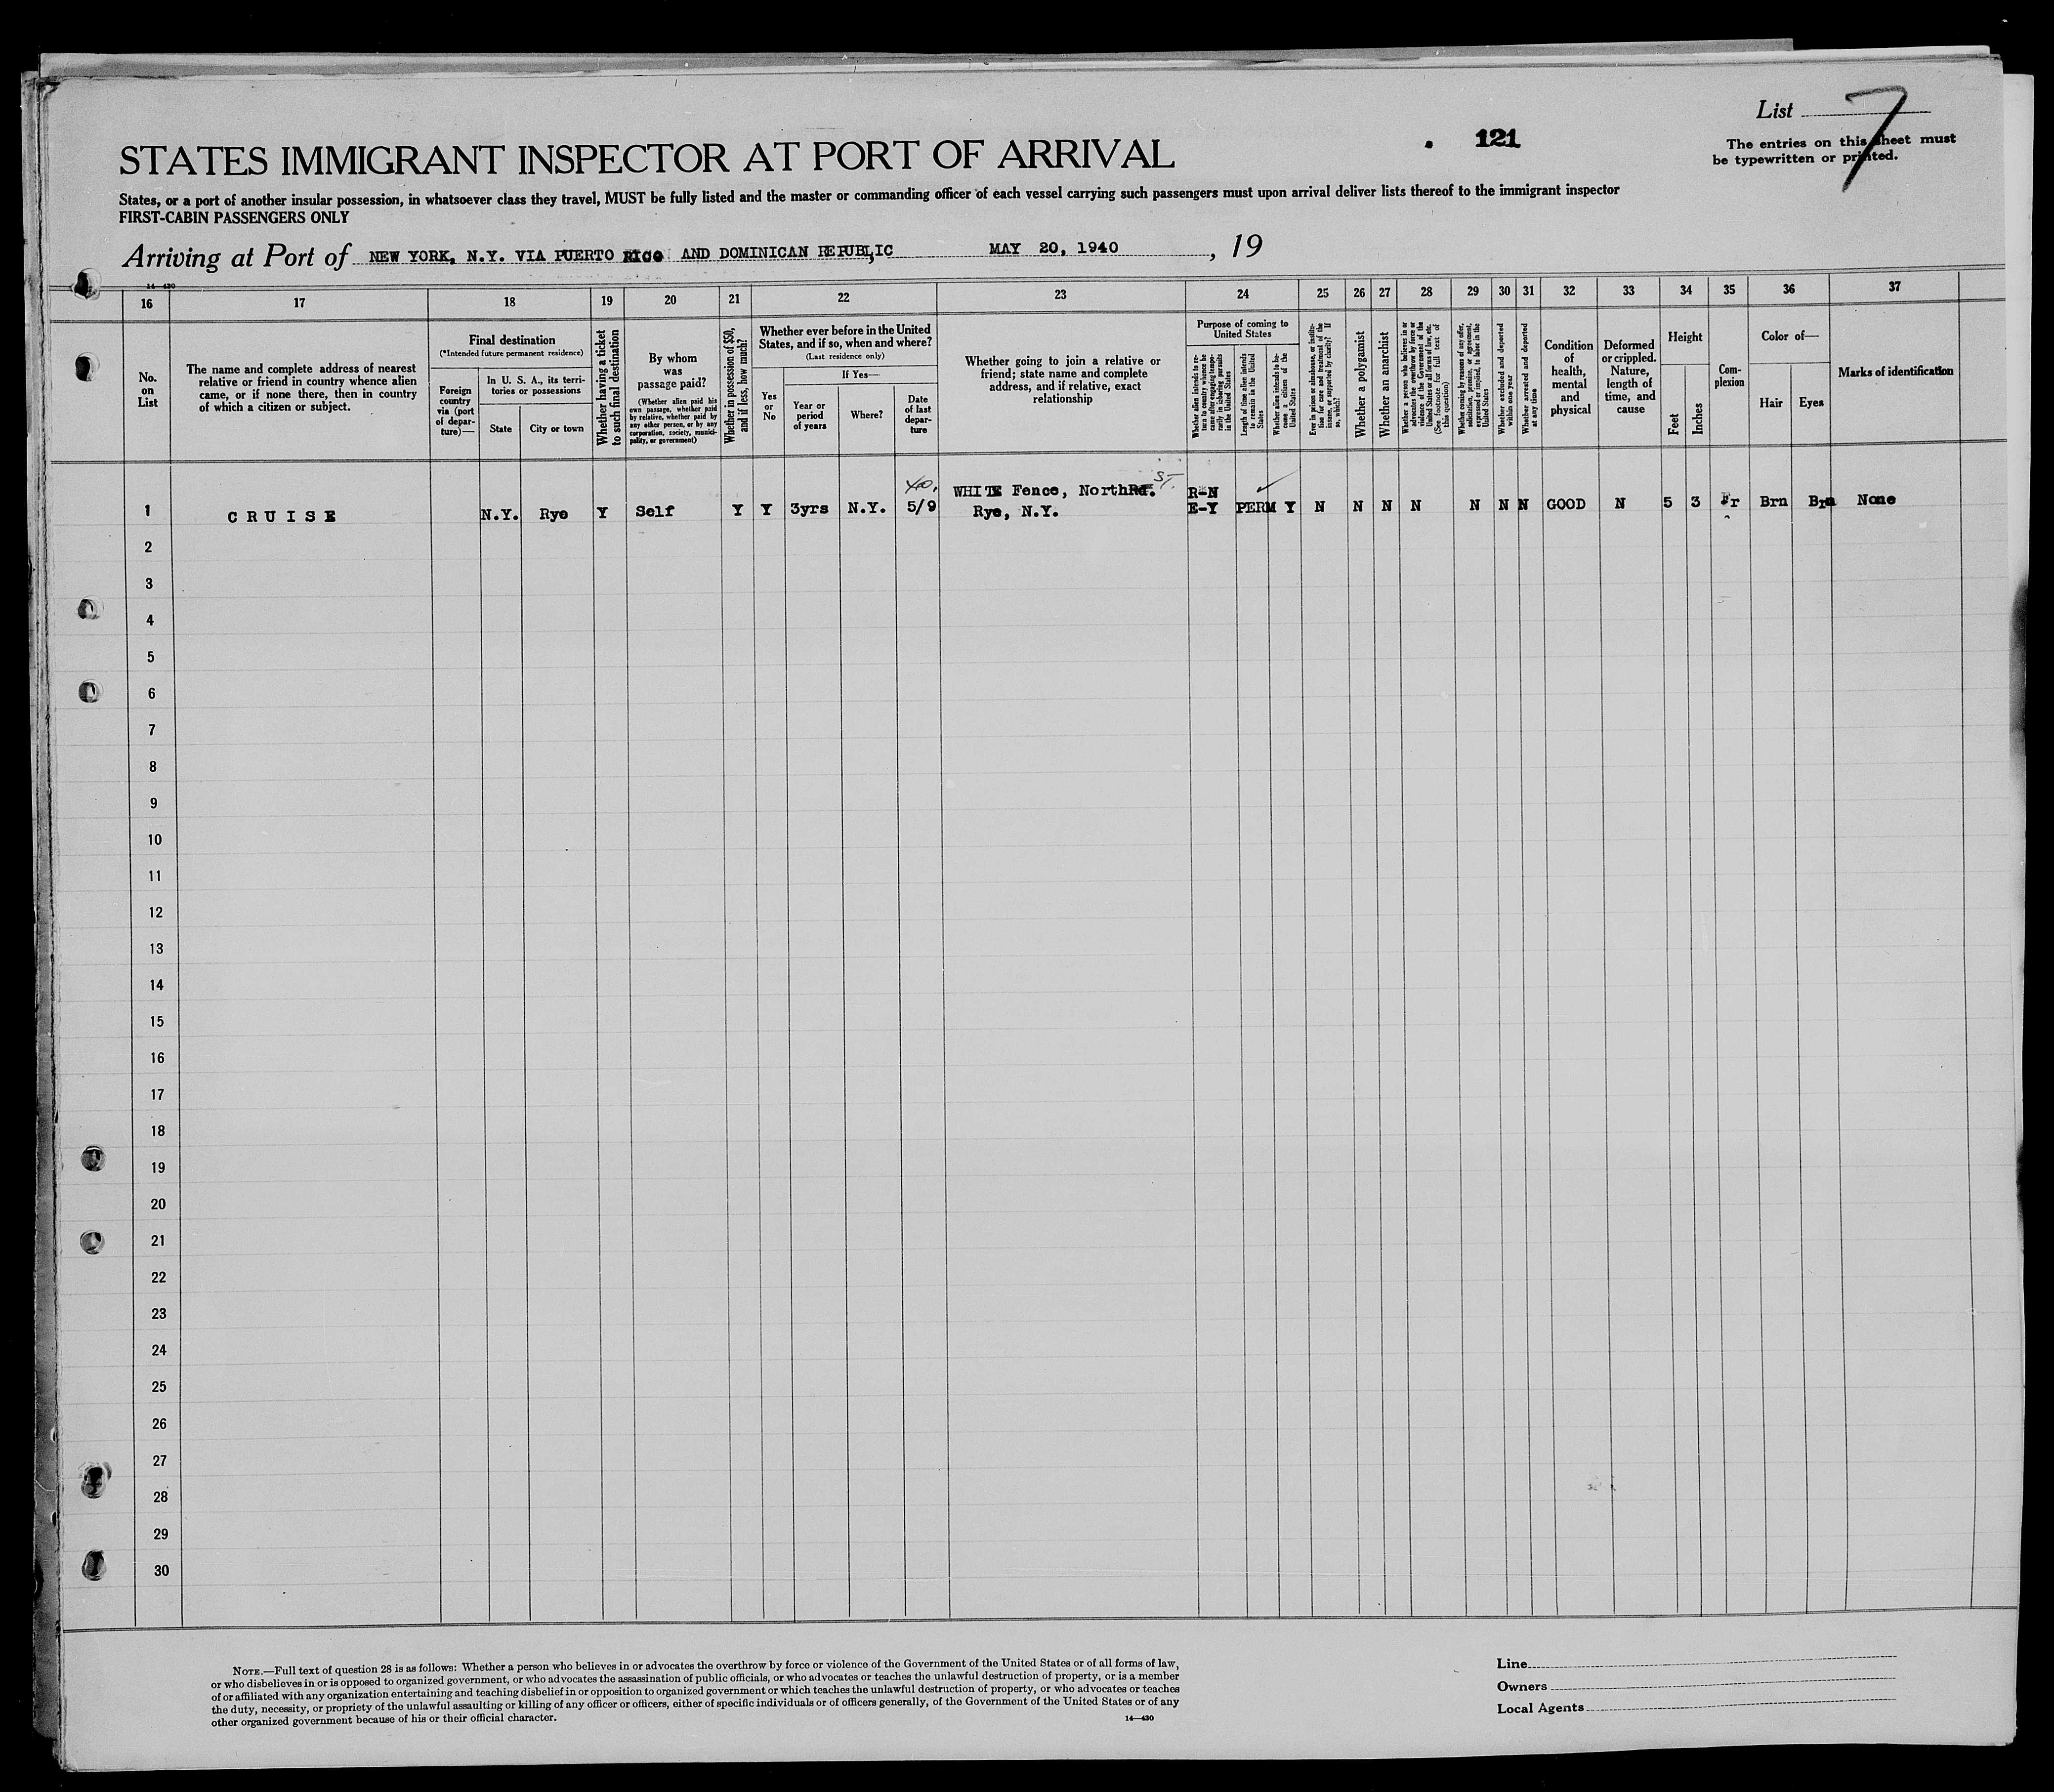 List 7
121
The entries on this sheet must
be typewritten or printed.
STATES IMMIGRANT INSPECTOR AT PORT OF ARRIVAL
States, or a port of another insular possession, in whatsoever class they travel, MUST be fully listed and the master or commanding officer of each vessel carrying such passengers must upon arrival deliver lists thereof to the immigrant inspector
FIRST-CABIN PASSENGERS ONLY
Arriving at Port of NEW YORK, N.Y. VIA PUERTO RICO AND DOMINICAN REPUBLIC MAY 20, 1940, 19
14—430
16 17 18 19 20 21 22 23 24 25 26 27 28 29 30 31 32 33 34 35 36 37
No.
on
List
The name and complete address of nearest
relative or friend in country whence alien
came, or if none there, then in country
of which a citizen or subject.
Final destination
(*Intended future permanent residence)
Foreign
country
via (port
of depar-
ture)—
In U. S. A., its terri-
tories or possessions
State
City or town
Whether having a ticket
to such final destination
By whom
was
passage paid?
(Whether alien paid his
own passage, whether paid
by relative, whether paid by
any other person, or by any
corporation, society, munici-
pality, or government)
Whether in possession of $50,
and if less, how much?
Whether ever before in the United
States, and if so, when and where?
(Last residence only)
If Yes—
Yes
or
No
Year or
period
of years
Where?
Date
of last
depar-
ture
Whether going to join a relative or
friend; state name and complete
address, and if relative, exact
relationship
Purpose of coming to
United States
Whether alien intends to re-
turn to country whence he
came after engaging tempo-
rarily in laboring pursuits
in the United States
Length of time alien intends
to remain in the United
States
Whether alien intends to be-
come a citizen of the
United States
Ever in prison or almshouse, or institu-
tion for care and treatment of the
insane, or supported by charity? If
so, which?
Whether a polygamist
Whether an anarchist
Whether a person who believes in or
advocates the overthrow by force or
violence of the Government of the
United States or all forms of law, etc.
(See footnote for full text of
this question)
Whether coming by reasons of any offer,
solicitation, promise, or agreement,
expressed or implied, to labor in the
United States
Whether excluded and deported
within one year
Whether arrested and deported
at any time
Condition
of
health,
mental
and
physical
Deformed
or crippled.
Nature,
length of
time, and
cause
Height
Feet
Inches
Com-
plexion
Color of—
Hair
Eyes
Marks of identification
1 CRUISE N.Y. Rye Y Self Y Y 3yrs N.Y. 5/9 WHITE Fence, North Rd. ST.
Rye, N.Y. R-N
E-Y PERM Y N N N N N N N GOOD N 5 3 Fr Brn Brn None
2
3
4
5
6
7
8
9
10
11
12
13
14
15
16
17
18
19
20
21
22
23
24
25
26
27
28
29
30
NOTE.—Full text of question 28 is as follows: Whether a person who believes in or advocates the overthrow by force or violence of the Government of the United States or of all forms of law,
or who disbelieves in or is opposed to organized government, or who advocates the assassination of public officials, or who advocates or teaches the unlawful destruction of property, or is a member
of or affiliated with any organization entertaining and teaching disbelief in or opposition to organized government or which teaches the unlawful destruction of property, or who advocates or teaches
the duty, necessity, or propriety of the unlawful assaulting or killing of any officer or officers, either of specific individuals or of officers generally, of the Government of the United States or of any
other organized government because of his or their official character.
14—430
Line
Owners
Local Agents